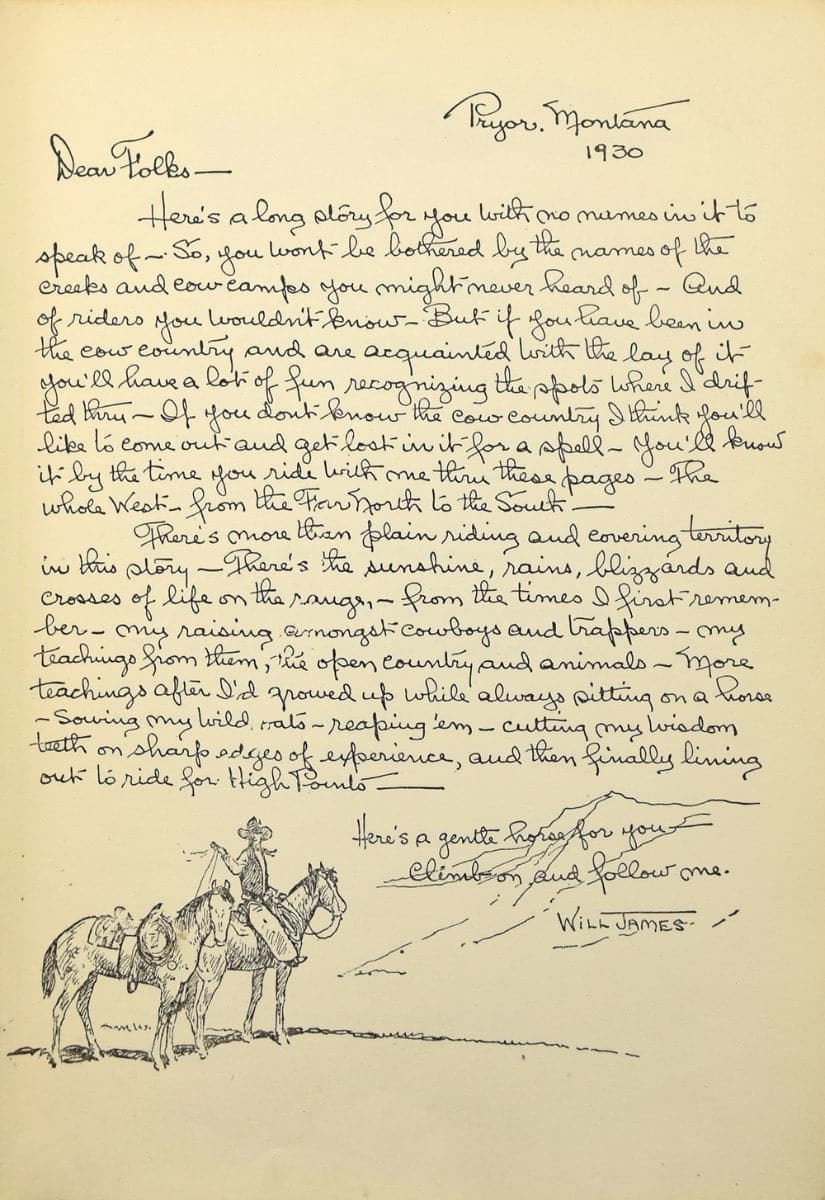 Pryor. Montana
1930
Dear Folks—
Here's a long story for you with no names in it to
speak of — So, you wont be bothered by the names of the
creeks and cow camps you might never heard of — And
of riders you wouldn't know — But if you have been in
the cow country and are acquainted with the lay of it
you'll have a lot of fun recognizing the spots where I drif-
ted thru — If you dont know the cow country I think you'll
like to come out and get lost in it for a spell — You'll know
it by the time you ride with me thru these pages — The
whole West — from the Far North to the South —
There's more than plain riding and covering territory
in this story — There's the sunshine, rains, blizzards and
crosses of life on the range, — from the times I first remem-
ber — my raising amongst cowboys and trappers — my
teachings from them, the open country and animals — More
teachings after I'd growed up while always sitting on a horse
— Sowing my wild oats — reaping 'em — cutting my wisdom
teeth on sharp edges of experience, and then finally lining
out to ride for High Points —
Here's a gentle horse for you —
Climb on and follow me.
WILL JAMES